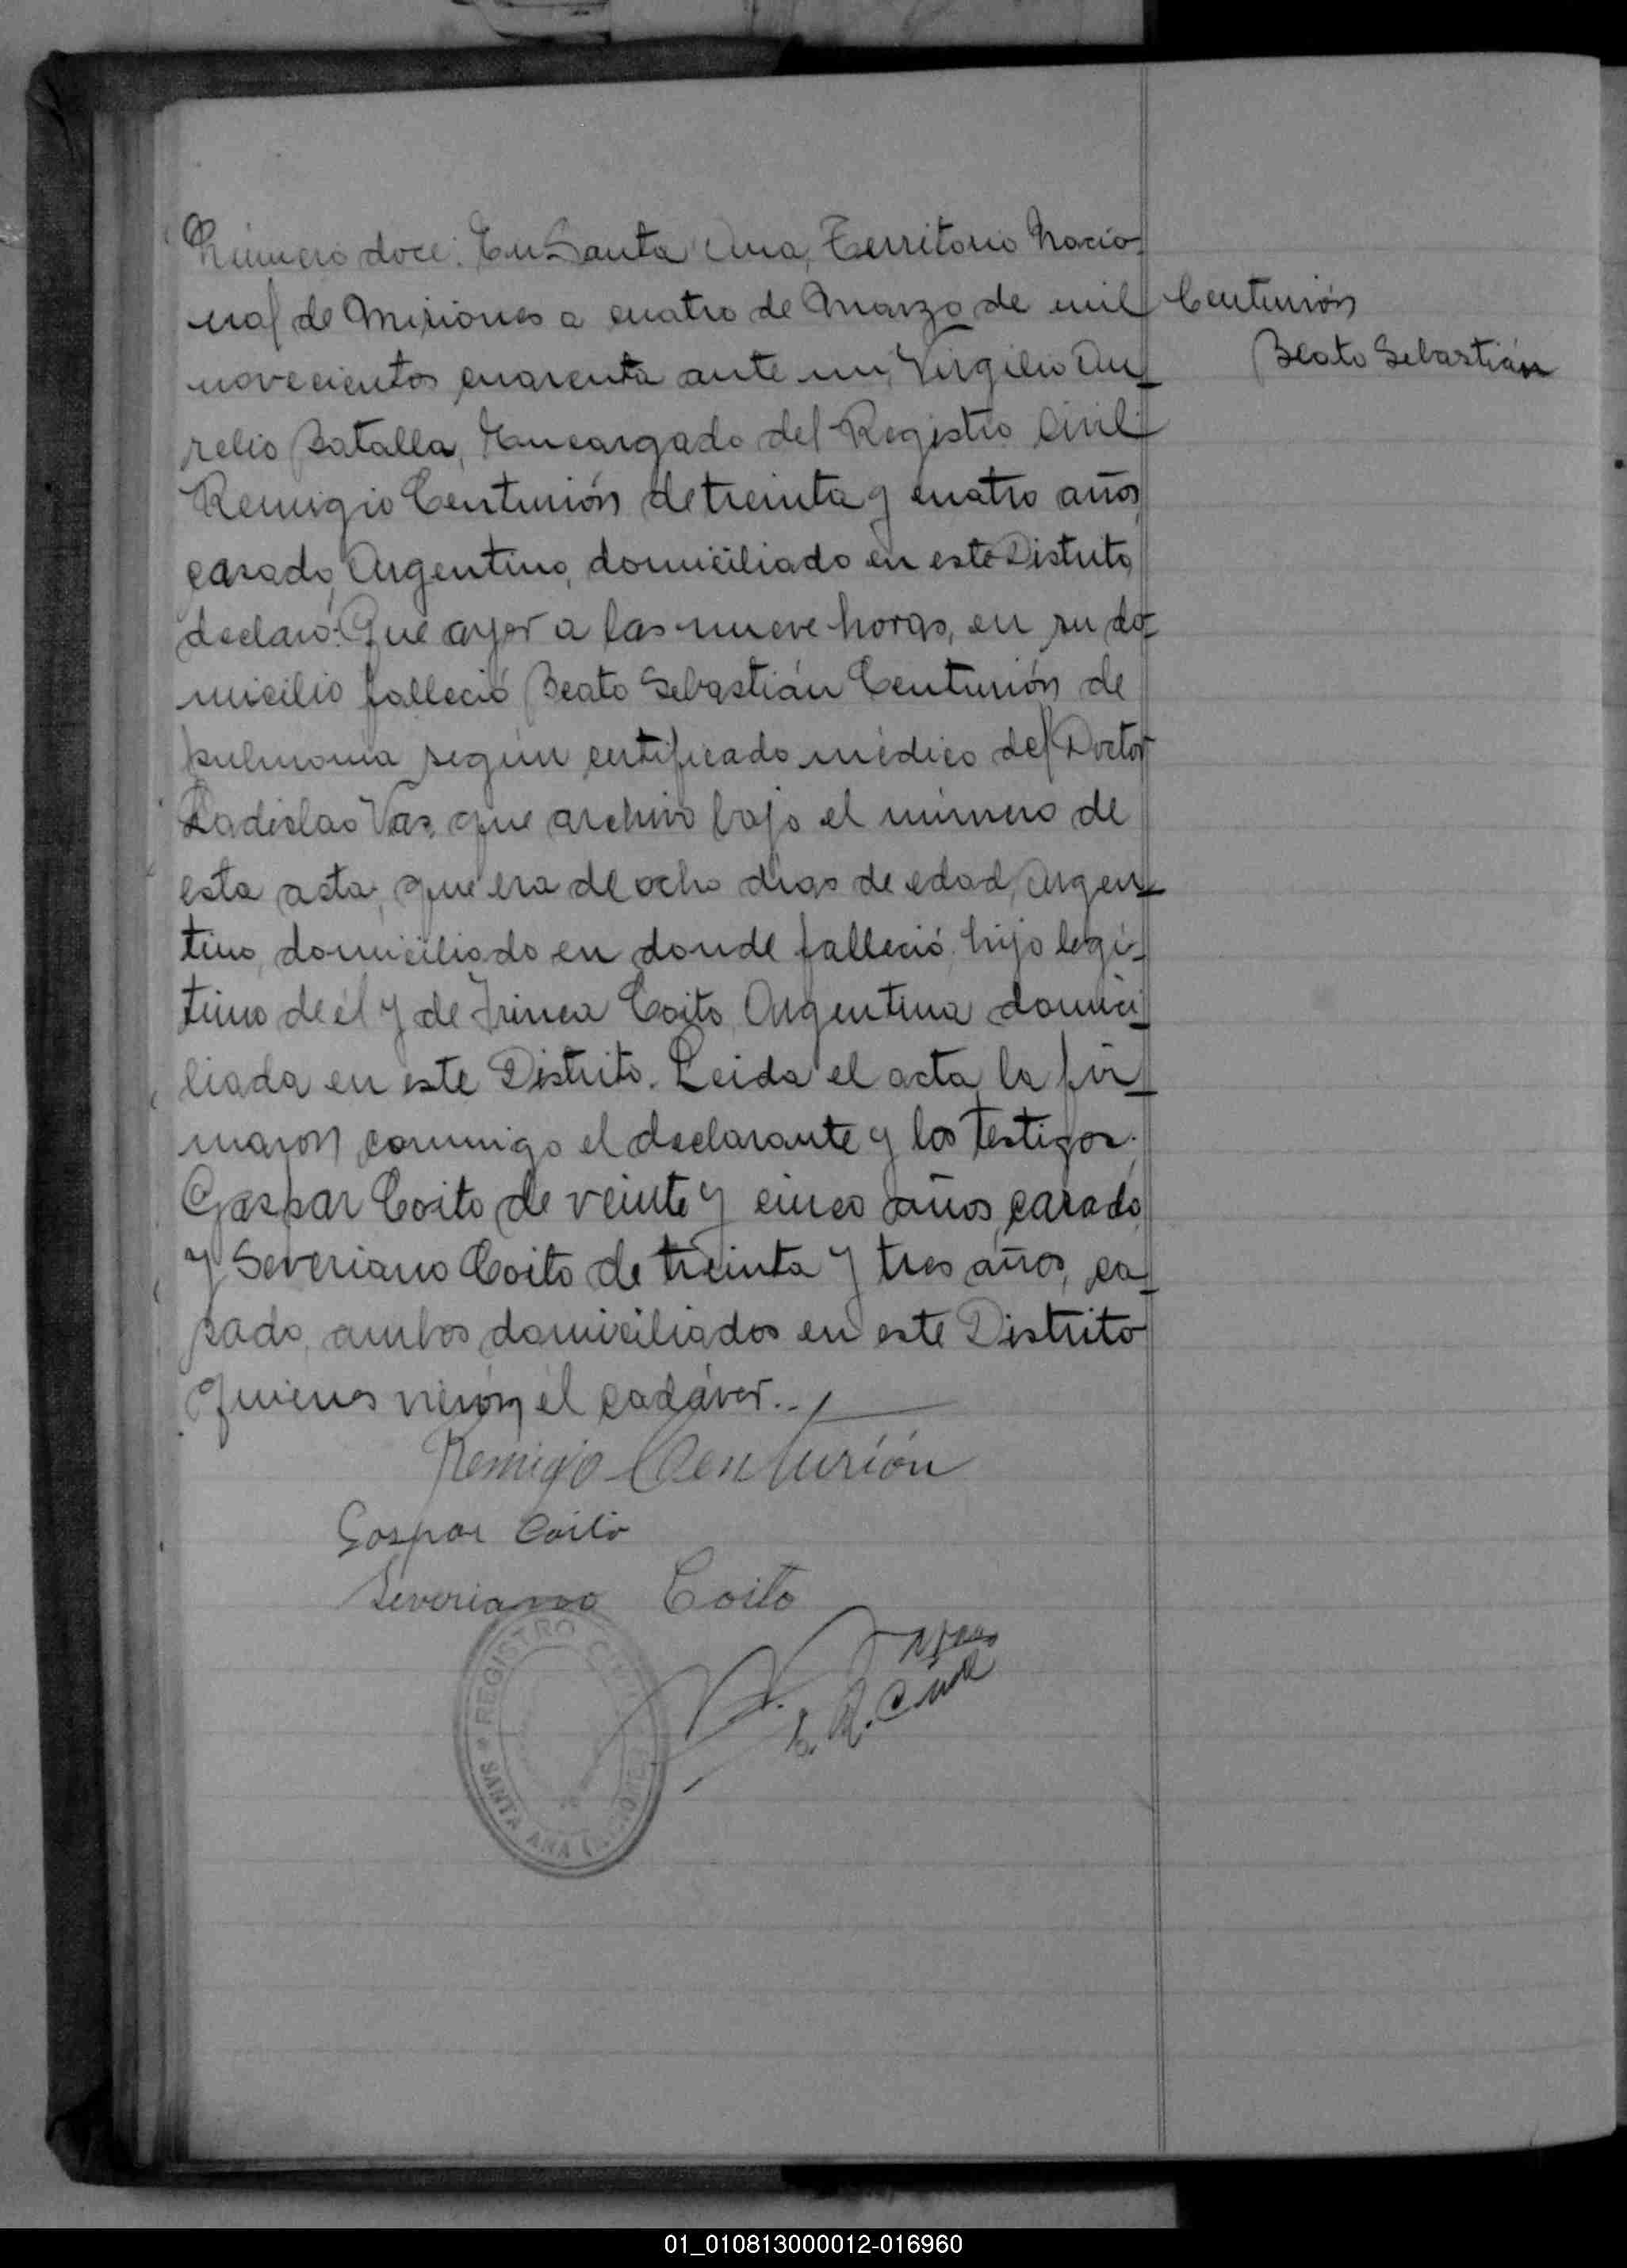 Número doce: En Santa Ana, Territorio Nacio-
nal de Misiones a cuatro de Marzo de mil
Centurión
Beato Sebastián
novecientos cuarenta ante mi, Virgilio Au-
relio Batalla, Encargado del Registro Civil
Remigio Centurión de treinta y cuatro años,
casado, Argentino, domiciliado en este Distrito
declaró: Que ayer a las nueve horas, en su do-
micilio falleció Beato Sebastián Centurión de
pulmonia según certificado médico del Doctor
Ladislao Vas, que archivo bajo el número de
esta acta, que era de ocho dias de edad, Argen-
tino, domiciliado en donde falleció, hijo legi-
timo de él y de Irinea Coito, Argentina domici-
liada en este Distrito. Leida el acta la fir-
maron conmigo el declarante y los testigos.
Gaspar Coito de veinte y cinco años, casado,
y Severiano Coito de treinta y tres años, ca-
sado, ambos domiciliados en este Distrito
quienes vieron el cadáver..
Remigio Centurión
Gaspar Coito
Severiano Coito
REGISTRO CIVIL
SANTA ANA
E. R. Civil
01_010813000012-016960